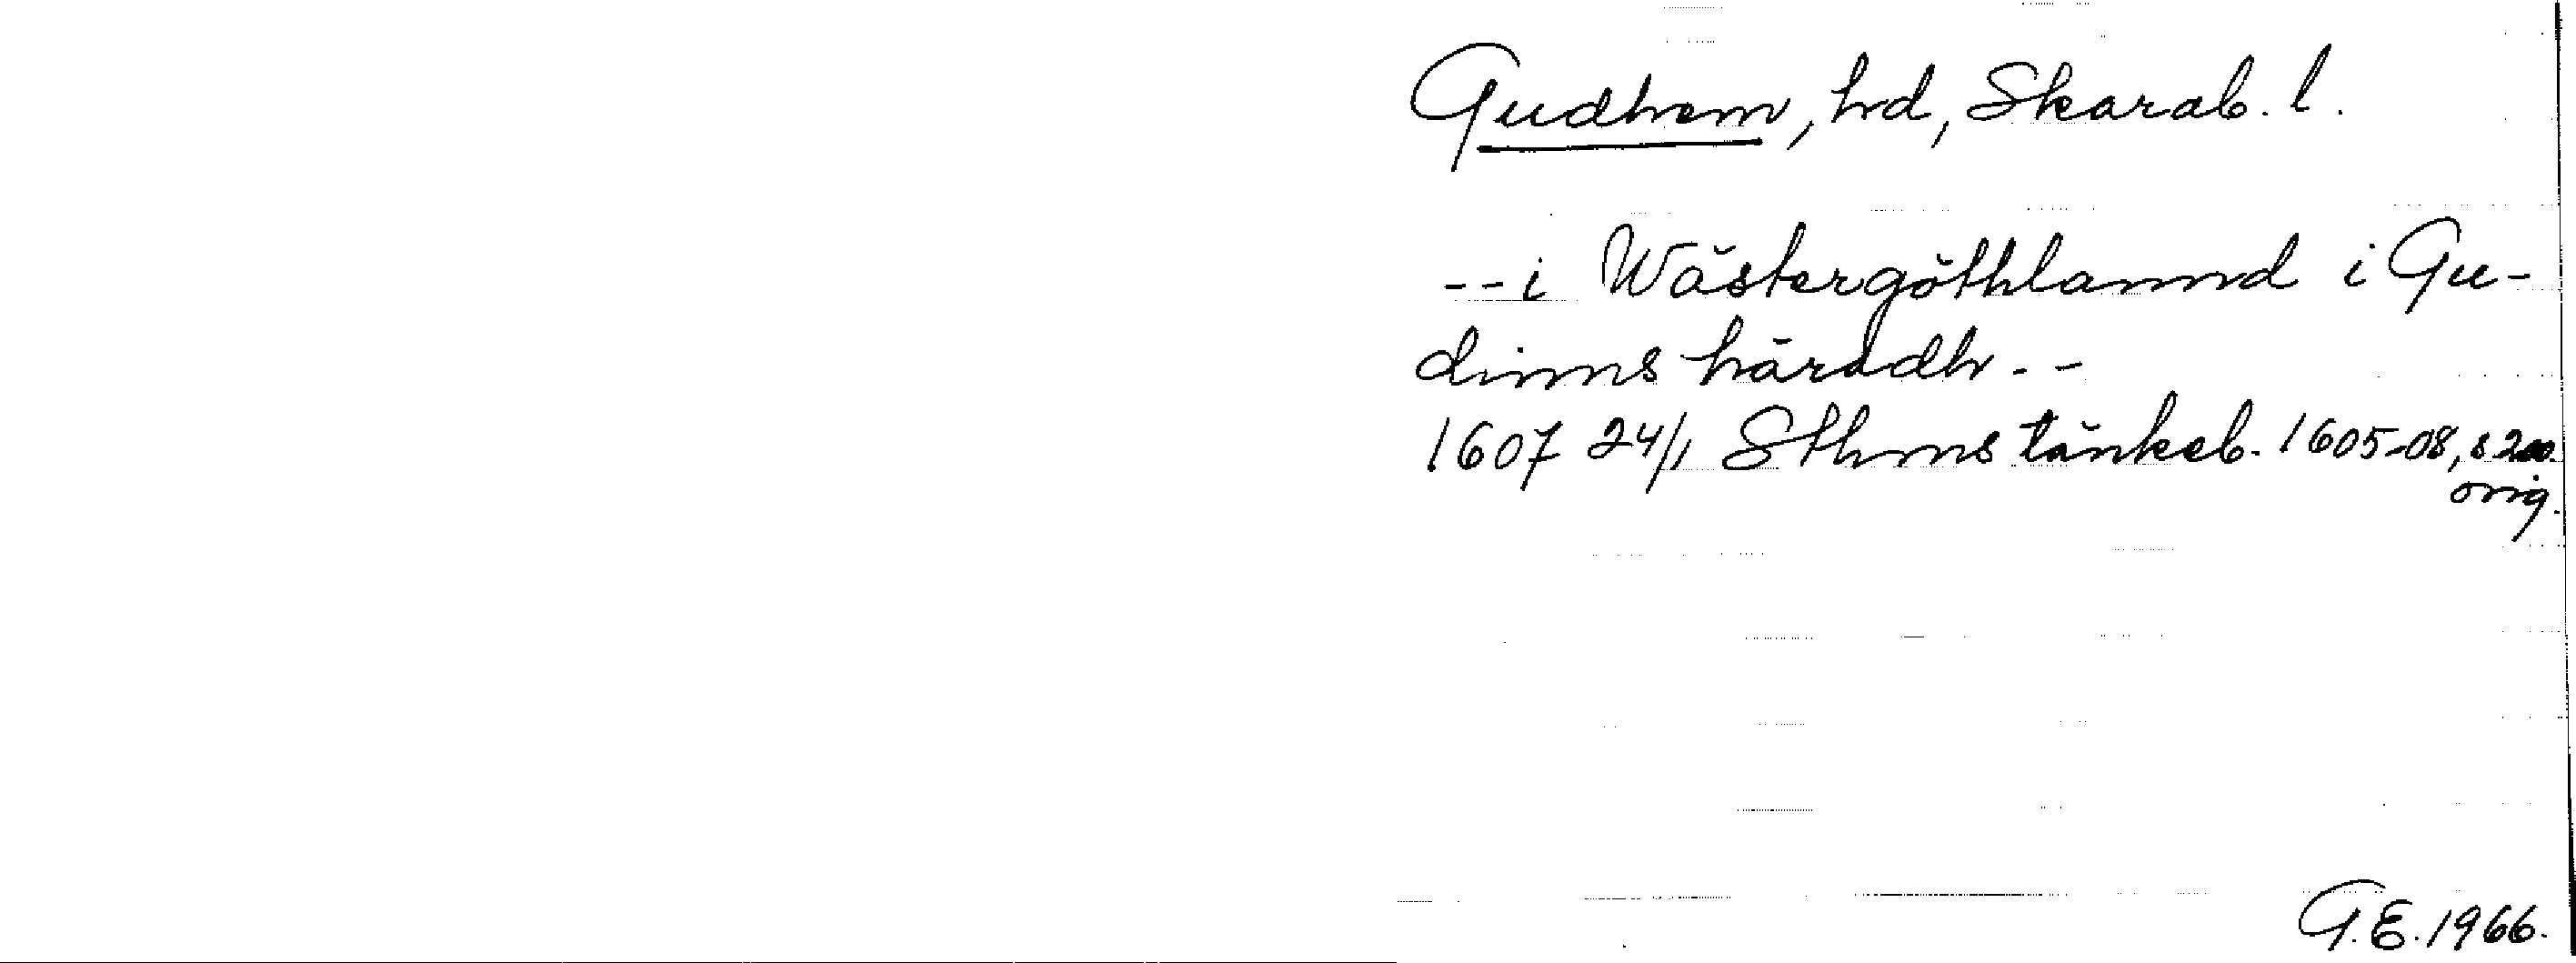 Gudhem, hd, Skarab. l.
-- i Wästergöthlannd i Gu-
dinns häradh --
1607 24/1 Sthms tänkeb. 1605-08, s 200.
orig.
G.E. 1966.